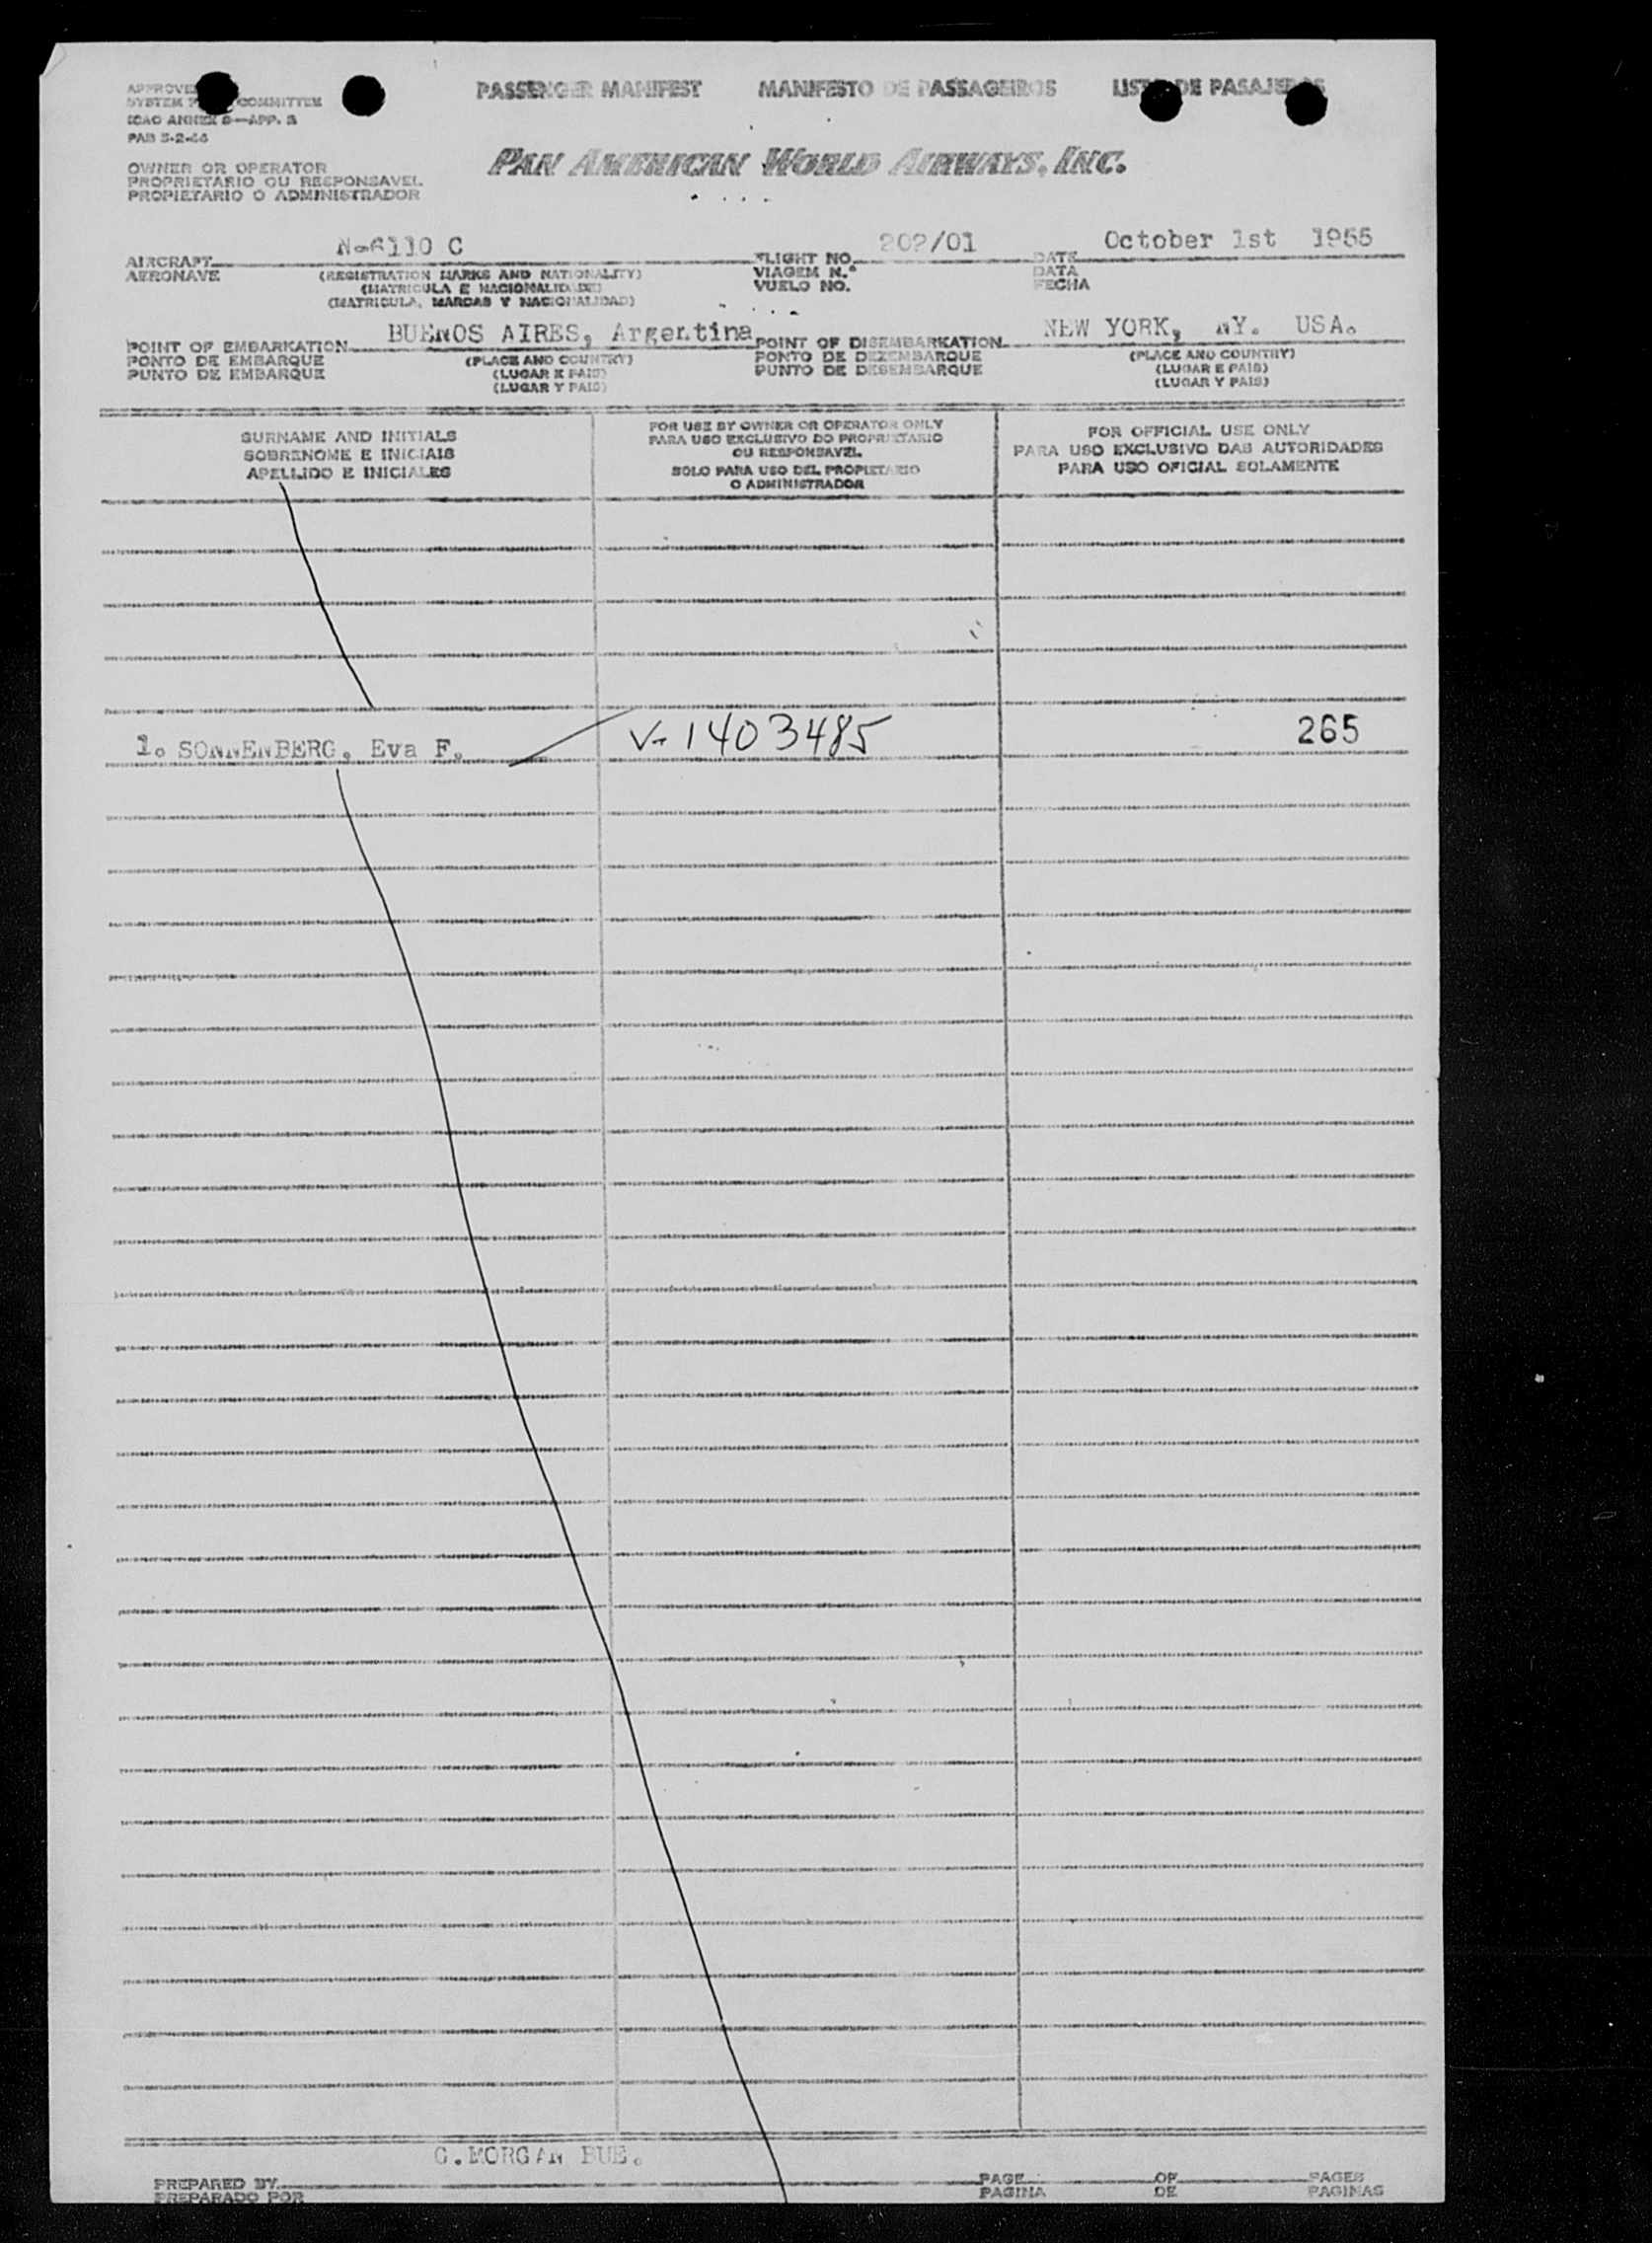 PASSENGER MANIFEST MANIFESTO DE PASSAGEIROS LISTA DE PASAJEROS
APPROVED
SYSTEM COMMITTEE
ICAO ANNEX 9—APP. 3
PAB 5-2-46
PAN AMERICAN WORLD AIRWAYS, INC.
OWNER OR OPERATOR
PROPRIETARIO OU RESPONSAVEL
PROPIETARIO O ADMINISTRADOR
AIRCRAFT N-6110 C FLIGHT NO. 202/01 DATE October 1st 1955
AERONAVE (REGISTRATION MARKS AND NATIONALITY) VIAGEM N.° DATA
(MATRICULA E NACIONALIDADE) VUELO NO. FECHA
(MATRICULA, MARCAS Y NACIONALIDAD)
POINT OF EMBARKATION BUENOS AIRES, Argentina POINT OF DISEMBARKATION NEW YORK, NY. USA.
PONTO DE EMBARQUE (PLACE AND COUNTRY) PONTO DE DEZEMBARQUE (PLACE AND COUNTRY)
PUNTO DE EMBARQUE (LUGAR E PAIS) PUNTO DE DESEMBARQUE (LUGAR E PAIS)
(LUGAR Y PAIS) (LUGAR Y PAIS)
SURNAME AND INITIALS
SOBRENOME E INICIAIS
APELLIDO E INICIALES
FOR USE BY OWNER OR OPERATOR ONLY
PARA USO EXCLUSIVO DO PROPRIETARIO
OU RESPONSAVEL
SOLO PARA USO DEL PROPIETARIO
O ADMINISTRADOR
FOR OFFICIAL USE ONLY
PARA USO EXCLUSIVO DAS AUTORIDADES
PARA USO OFICIAL SOLAMENTE
1. SONNENBERG, Eva F. V-1403485 265
G.MORGAN BUE.
PREPARED BY PAGE OF PAGES
PREPARADO POR PAGINA DE PAGINAS